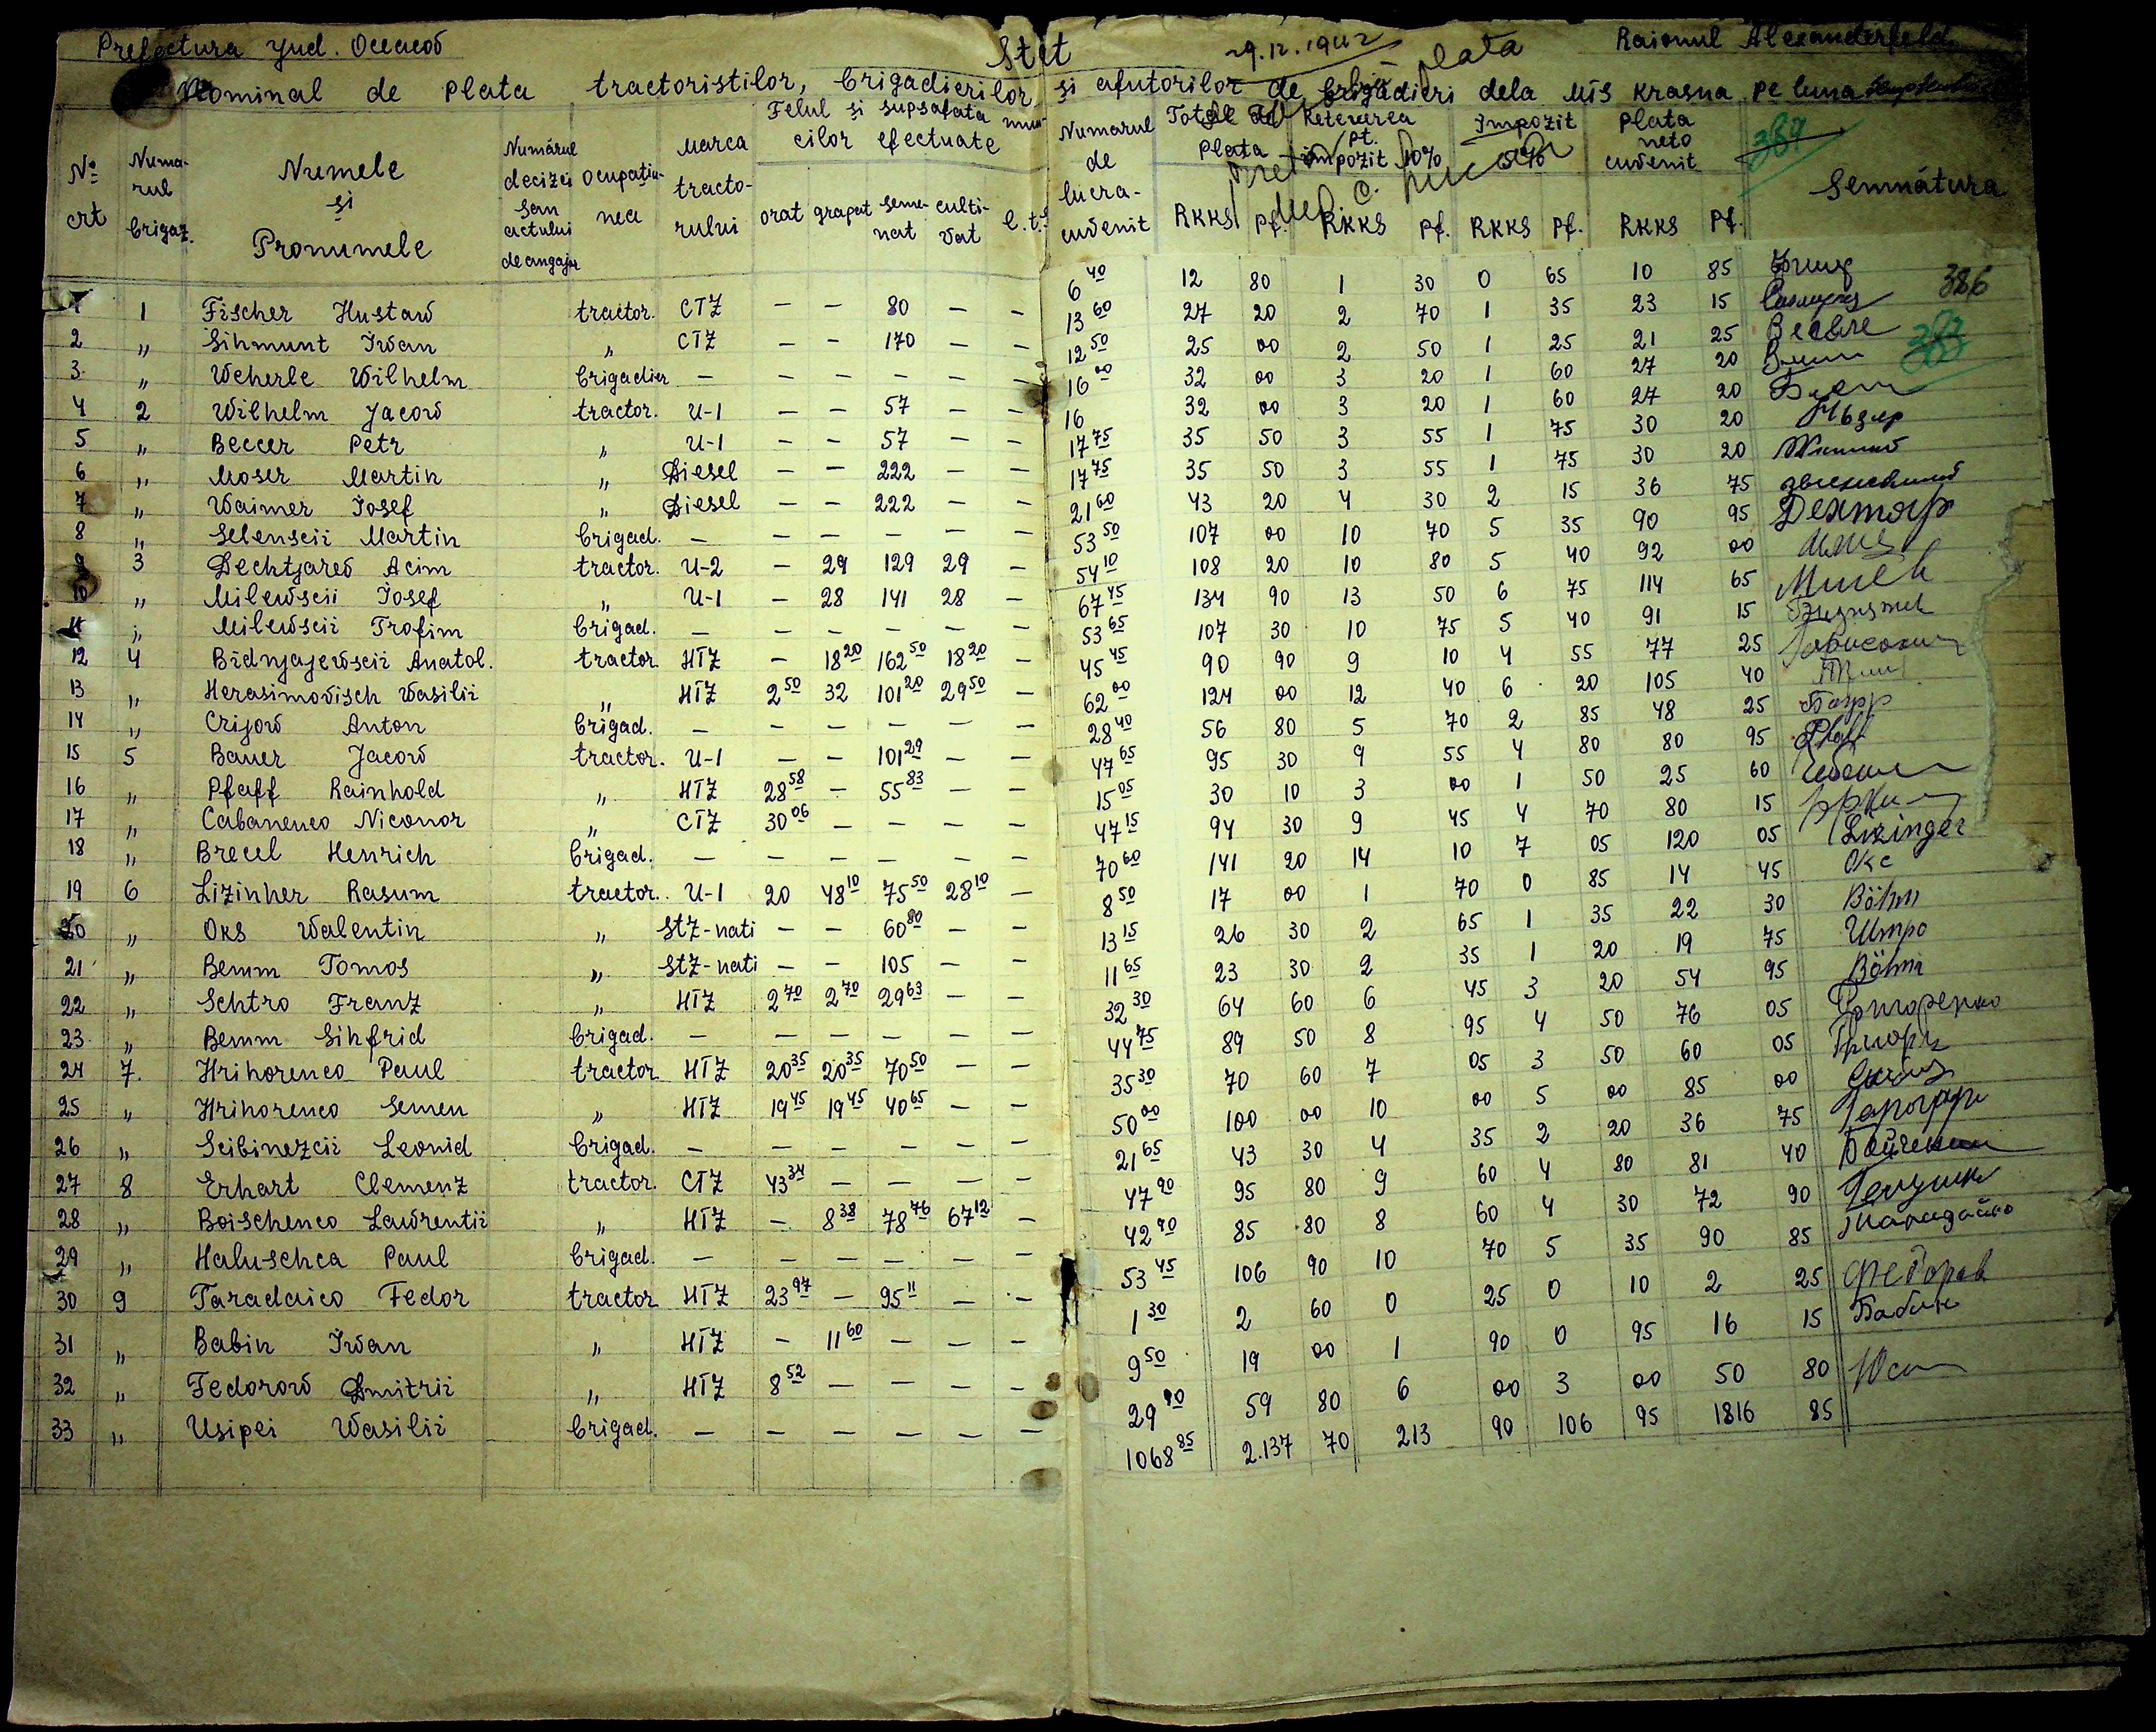 Prefectura jud. Oceacov Stat 29.12.1942 plata Raionul Alexanderfeld
Nominal de plata tractoristilor, brigadierilor și ajutorilor de brigadieri dela MIS Krasna pe luna
№ crt Numarul brigaz. Numele și Pronumele Numărul decizei sau actului de angajar Ocupațiunea Marca tractorului Felul și supsafata muncilor efectuate Numarul de lucra- cuvenit Total Plata Retenerea pt. impozit 10% Impozit 5% Plata neto cuvenit 387 Semnătura
orat grapat semenat cultivat c.t.s RKKS Pf. RKKS Pf. RKKS Pf. RKKS Pf.
1 1 Fischer Hustaw tractor. CTZ – – 80 – – 6 40 12 80 1 30 0 65 10 85 386
2 " Sihmunt Iwan " CTZ – – 170 – – 13 60 27 20 2 70 1 35 23 15
3 " Weherle Wilhelm brigadier – – – – – – 12 50 25 00 2 50 1 25 21 25
4 2 Wilhelm Jacow tractor. U-1 – – 57 – – 16 00 32 00 3 20 1 60 27 20
5 " Beccer Petr " U-1 – – 57 – – 16 32 00 3 20 1 60 27 20
6 " Moser Martin " Diesel – – 222 – – 17 75 35 50 3 55 1 75 30 20
7 " Waimer Iosef " Diesel – – 222 – – 17 75 35 50 3 55 1 75 30 20
8 " Selenscii Martin brigad. – – – – – – 21 60 43 20 4 30 2 15 36 75
9 3 Dechtjarev Acim tractor. U-2 – 29 129 29 – 53 50 107 00 10 70 5 35 90 95 Дехтяр
10 " Milewscii Iosef " U-1 – 28 141 28 – 54 10 108 20 10 80 5 40 92 00
11 " Milewscii Trofim brigad. – – – – – – 67 45 134 90 13 50 6 75 114 65
12 4 Bidnjajewscii Anatol. tractor. HTZ – 18 20 162 50 18 20 – 53 65 107 30 10 75 5 40 91 15
13 " Herasimovisch Wasilii " HTZ 2 50 32 101 20 29 50 – 45 45 90 90 9 10 4 55 77 25
14 " Crijow Anton brigad. – – – – – – 62 00 124 00 12 40 6 20 105 40
15 5 Bauer Jacow tractor. U-1 – – 101 29 – – 28 40 56 80 5 70 2 85 48 25
16 " Pfaff Rainhold " HTZ 28 58 – 55 83 – – 47 65 95 30 9 55 4 80 80 95 Pfaff
17 " Cabanenco Niconor " CTZ 30 06 – – – – 15 05 30 10 3 00 1 50 25 60
18 " Brecel Henrich brigad. – – – – – – 47 15 94 30 9 45 4 70 80 15
19 6 Lizinher Rasum tractor. U-1 20 48 10 75 50 28 10 – 70 60 141 20 14 10 7 05 120 05 Lizinger
20 " Oks Walentin " STZ-nati – – 60 80 – – 8 50 17 00 1 70 0 85 14 45 Окс
21 " Bemm Tomos " STZ-nati – – 105 – – 13 15 26 30 2 65 1 35 22 30 Böhm
22 " Schtro Franz " HTZ 2 70 2 70 29 63 – – 11 65 23 30 2 35 1 20 19 75 Штро
23 " Bemm Sihfrid brigad. – – – – – – 32 30 64 60 6 45 3 20 54 95 Böhm
24 7. Hrihorenco Paul tractor HTZ 20 35 20 35 70 50 – – 44 75 89 50 8 95 4 50 76 05 Григоренко
25 " Hrihorenco Semen " HTZ 19 45 19 45 40 65 – – 35 30 70 60 7 05 3 50 60 05
26 " Scibinezcii Leonid brigad. – – – – – – 50 00 100 00 10 00 5 00 85 00
27 8 Erhart Clemenz tractor. CTZ 43 34 – – – – 21 65 43 30 4 35 2 20 36 75
28 " Boischenco Lawrentii " HTZ – 8 38 78 76 67 12 – 47 90 95 80 9 60 4 80 81 40
29 " Haluschca Paul brigad. – – – – – – 42 90 85 80 8 60 4 30 72 90
30 9 Taradaico Fedor tractor HTZ 23 97 – 95 11 – – 53 45 106 90 10 70 5 35 90 85 Тарадайко
31 " Babin Iwan " HTZ – 11 60 – – – 1 30 2 60 0 25 0 10 2 25 Федоров
32 " Fedorow Dmitrii " HTZ 8 52 – – – – 9 50 19 00 1 90 0 95 16 15 Бабин
33 " Usipei Wasilii brigad. – – – – – – 29 90 59 80 6 00 3 00 50 80
1068 85 2.137 70 213 90 106 95 1816 85